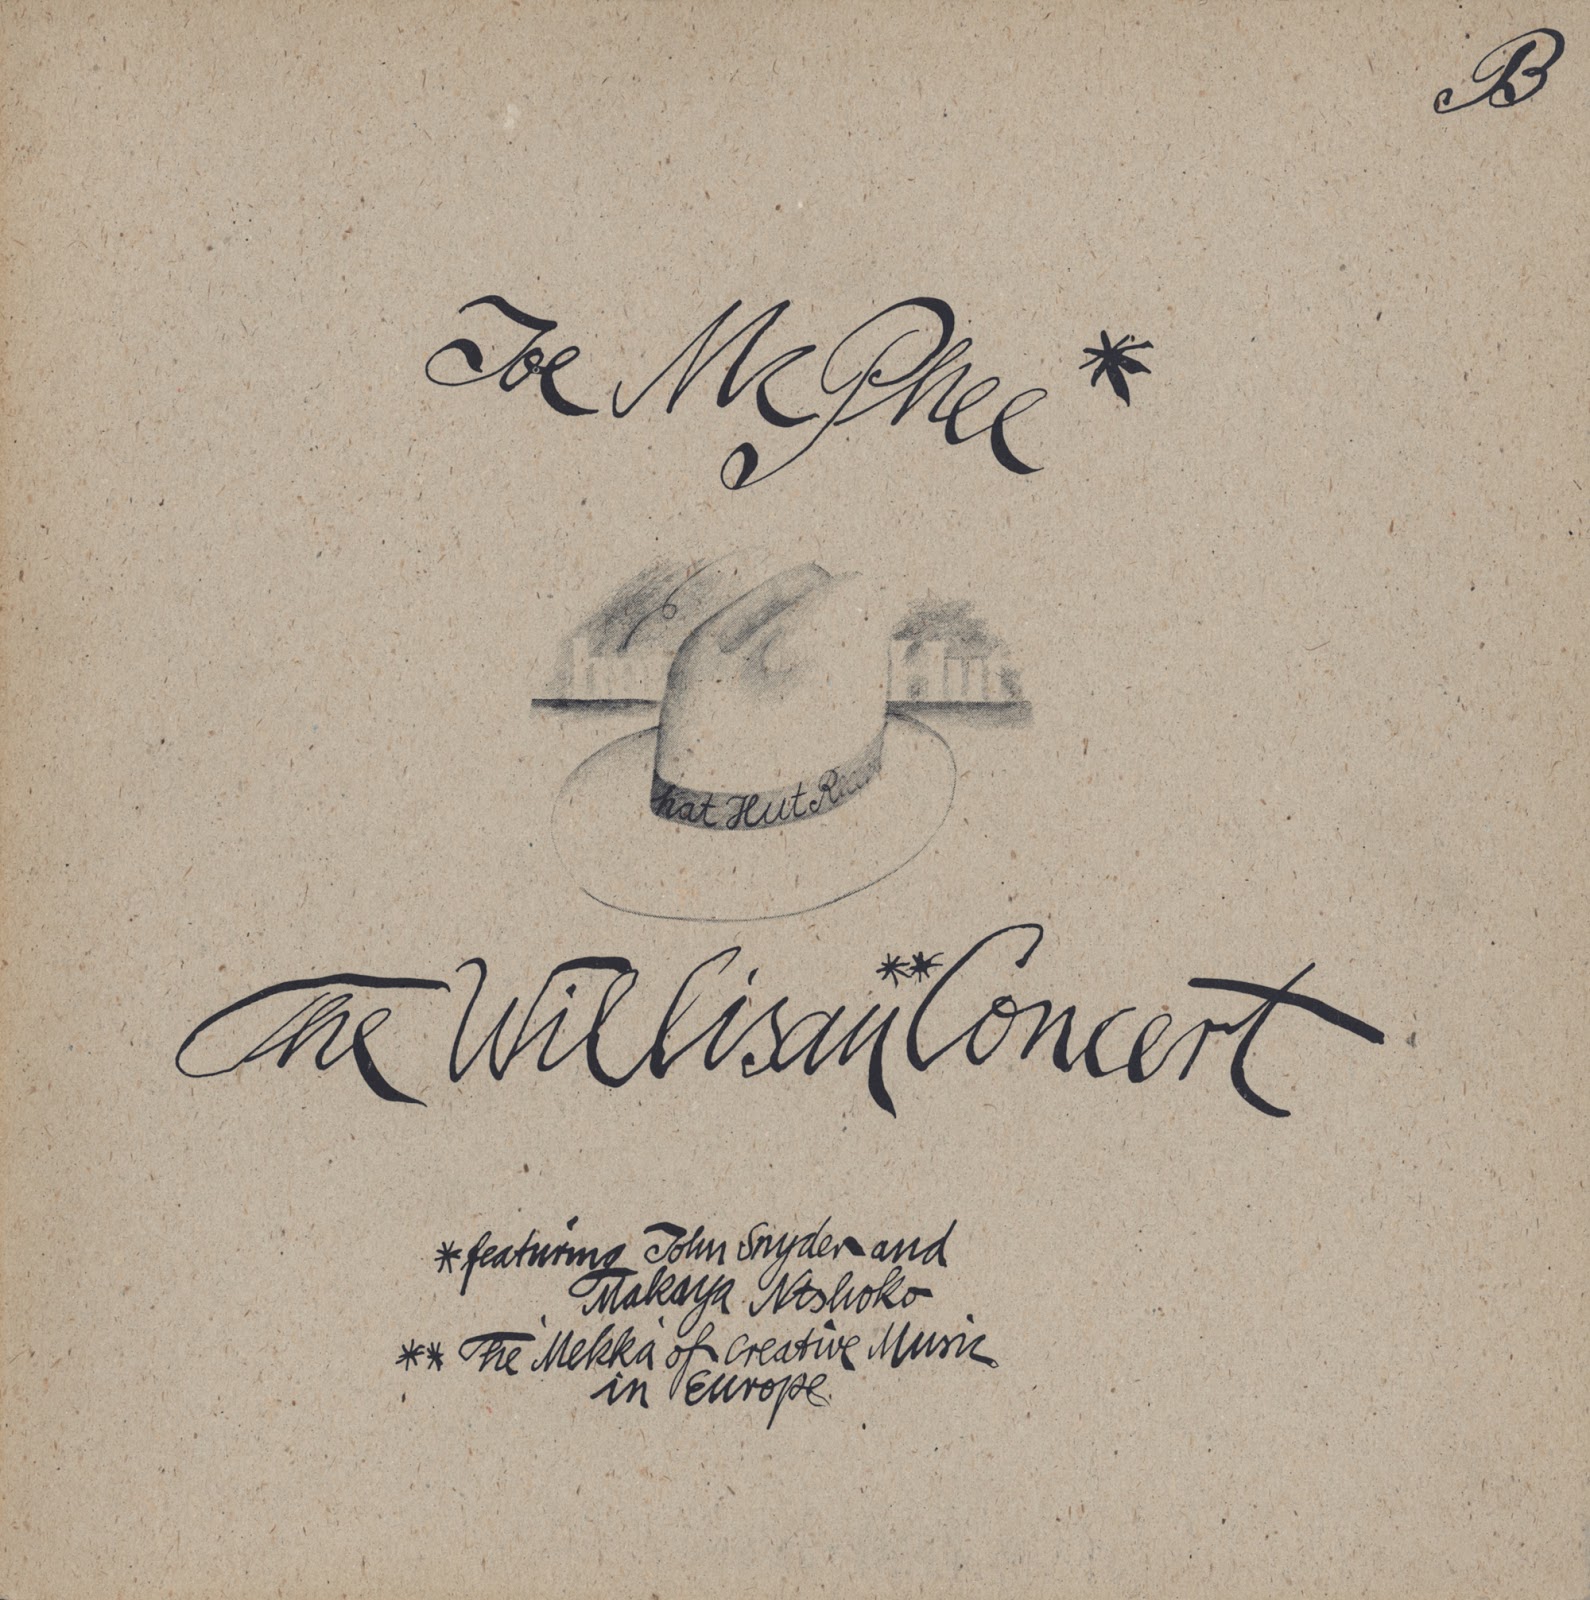 B
Joe McPhee *
hat Hut
The Willisau ** Concert
* featuring John Snyder and
Makaya Ntshoko
** The 'Mekka' of Creative Music
in Europe